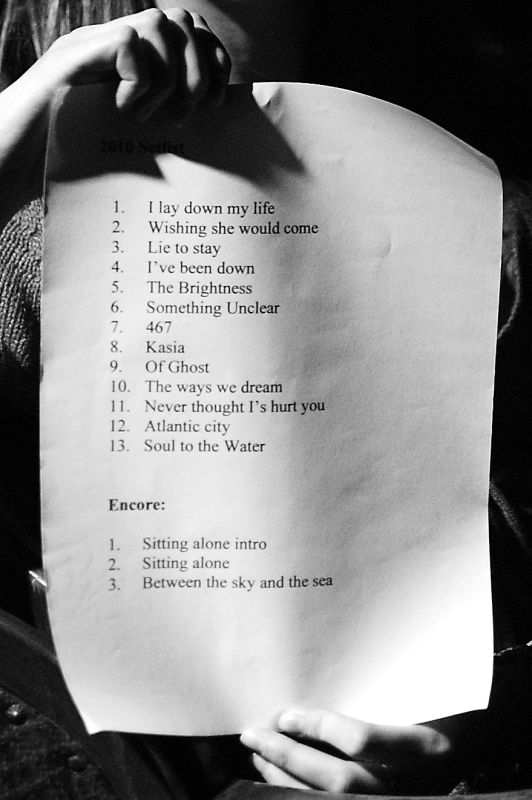 2010 Setlist
1. I lay down my life
2. Wishing she would come
3. Lie to stay
4. I've been down
5. The Brightness
6. Something Unclear
7. 467
8. Kasia
9. Of Ghost
10. The ways we dream
11. Never thought I's hurt you
12. Atlantic city
13. Soul to the Water
Encore:
1. Sitting alone intro
2. Sitting alone
3. Between the sky and the sea